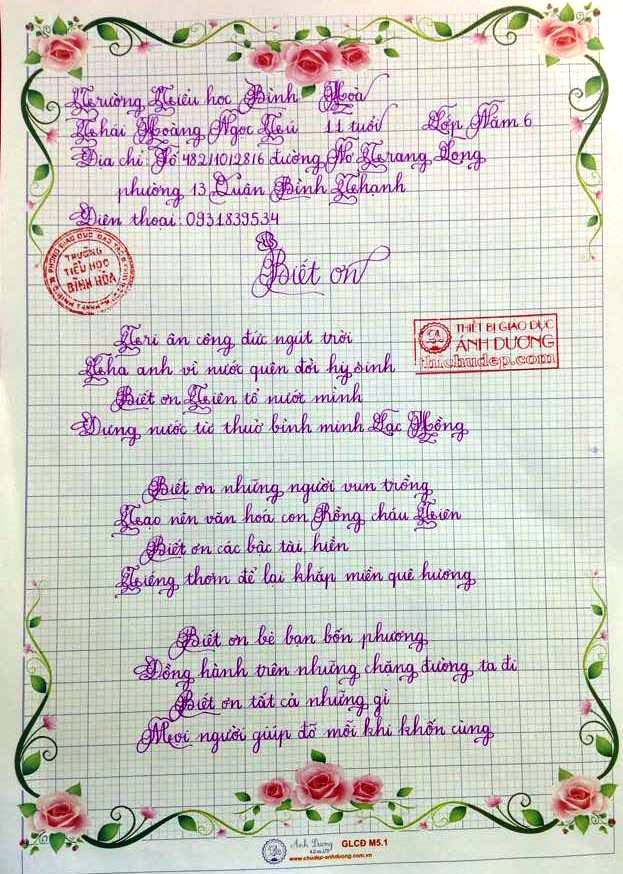 Trường Tiểu học Bình Hoà
Thái Hoàng Ngọc Tú 11 tuổi Lớp Năm 6
Địa chỉ: Tổ 482/1012816 đường Nơ Trang Long
phường 13 Quận Bình Thạnh
Điện thoại: 0931839534
PHÒNG GIÁO DỤC ĐÀO TẠO
TRƯỜNG
TIỂU HỌC
BÌNH HÒA
Biết ơn
THIẾT BỊ GIÁO DỤC
ÁNH DƯƠNG
thichudep.com
Tri ân công đức ngút trời
Cha anh vì nước quên đời hy sinh
Biết ơn Tiên tổ nước mình
Dựng nước từ thuở bình minh Lạc Hồng
Biết ơn những người vun trồng
Tạo nên văn hoa con Rồng cháu Tiên
Biết ơn các bậc tài hiền
Tiếng thơm để lại khắp miền quê hương
Biết ơn bè bạn bốn phương
Đồng hành trên những chặng đường ta đi
Biết ơn tất cả những gì
Mọi người giúp đỡ mỗi khi khốn cùng
Ánh Dương
GLCĐ M5.1
www.chudep-anhduong.com.vn